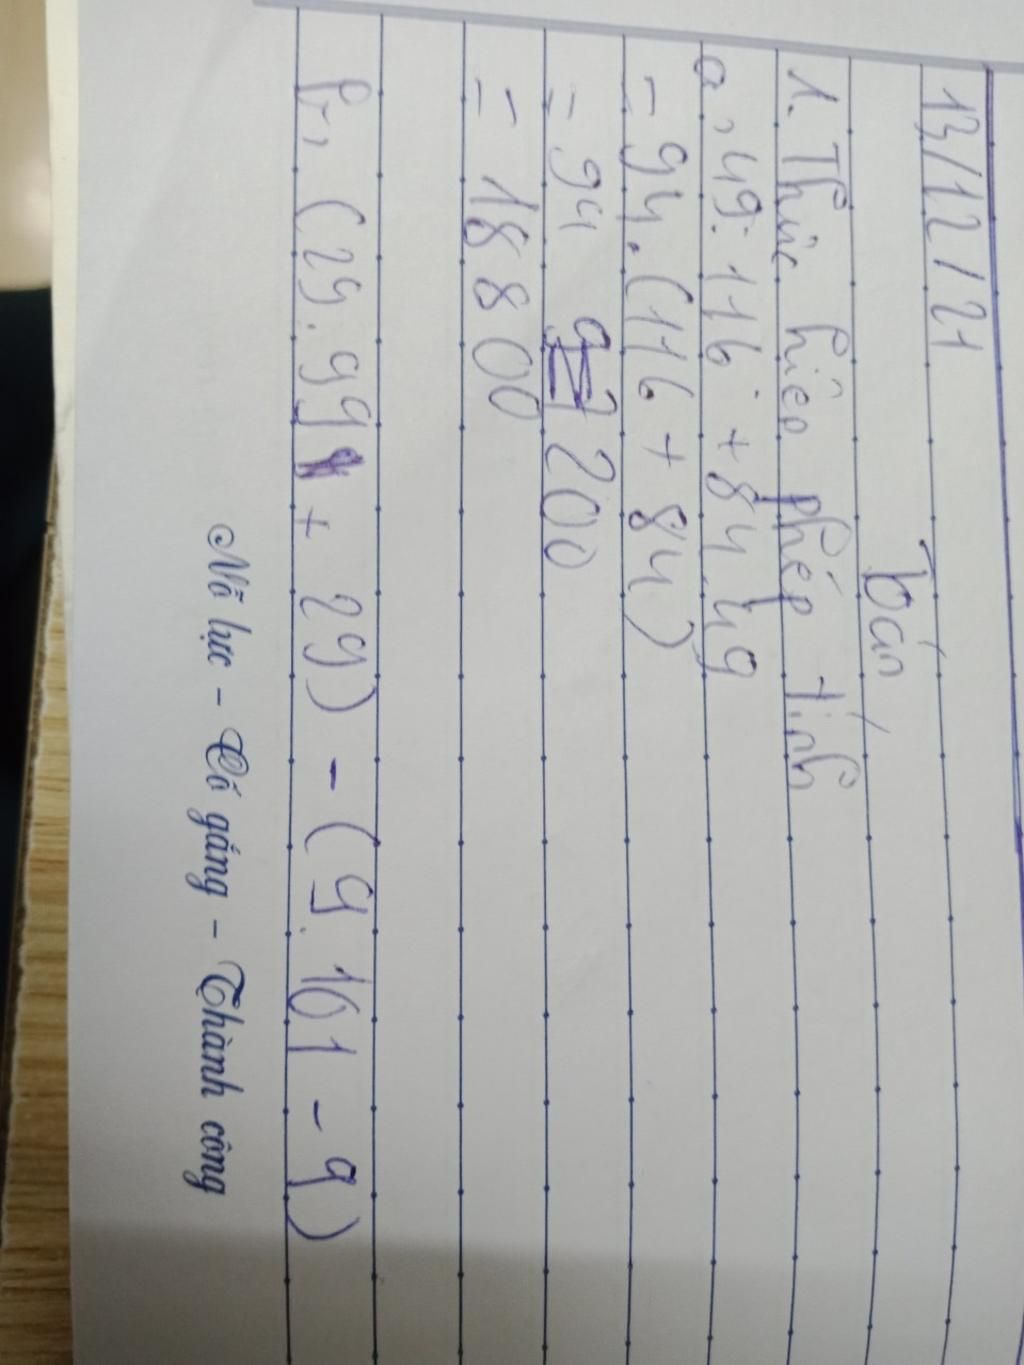 13/12/21
Toán
1. Thức hiện phép tính
a, 49.116 + 84.49
= 94.(116 + 84)
= 94 200
= 18800
b, (29.99 + 29) - (9.101 - 9)
Nỗ lực - Cố gắng - Thành công